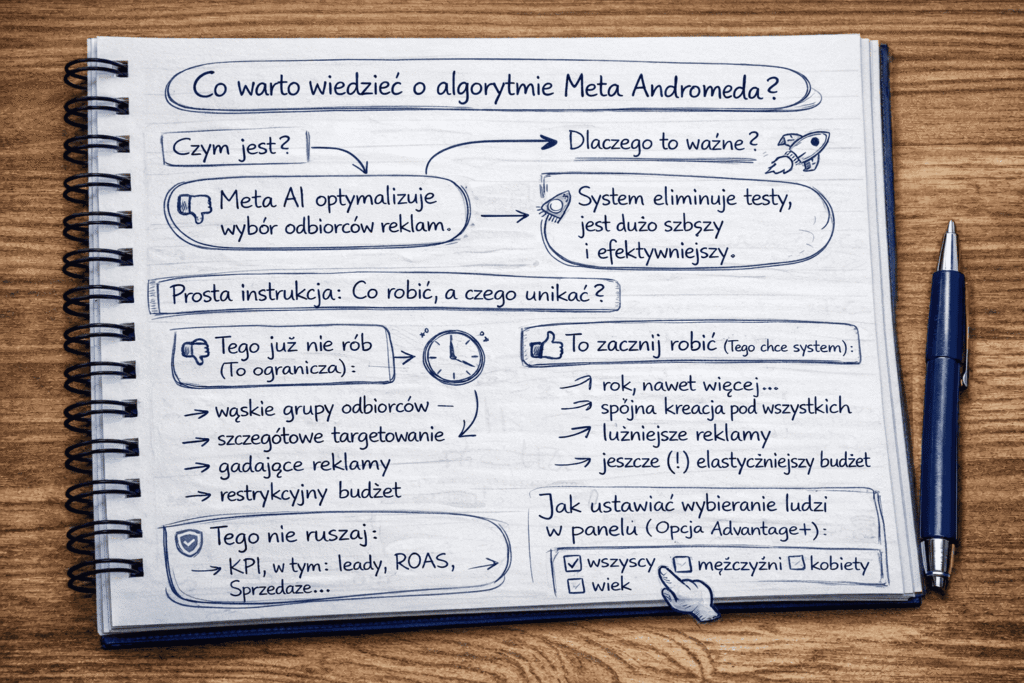 Co warto wiedzieć o algorytmie Meta Andromeda?
Czym jest?
Dlaczego to ważne?
Meta AI optymalizuje
wybór odbiorców reklam.
System eliminuje testy,
jest dużo szbşzy
i efektywniejszy.
Prosta instrukcja: Co robić, a czego unikać?
Tego już nie rób
(To ogranicza):
→ wąskie grupy odbiorców —
→ szczegółowe targetowanie
→ gadające reklamy
→ restrykcyjny budżet
To zacznij robić (Tego chce system):
→ rok, nawet więcej...
→ spójna kreacja pod wszystkich
→ luźniejsze reklamy
→ jeszcze (!) elastyczniejszy budżet
Tego nie ruszaj:
→ KPI, w tym: leady, ROAS,
Sprzedaże...
Jak ustawiać wybieranie ludzi
w panelu (Opcja Advantage+):
☑ wszyscy ☑ mężczyźni ☑ kobiety
☑ wiek